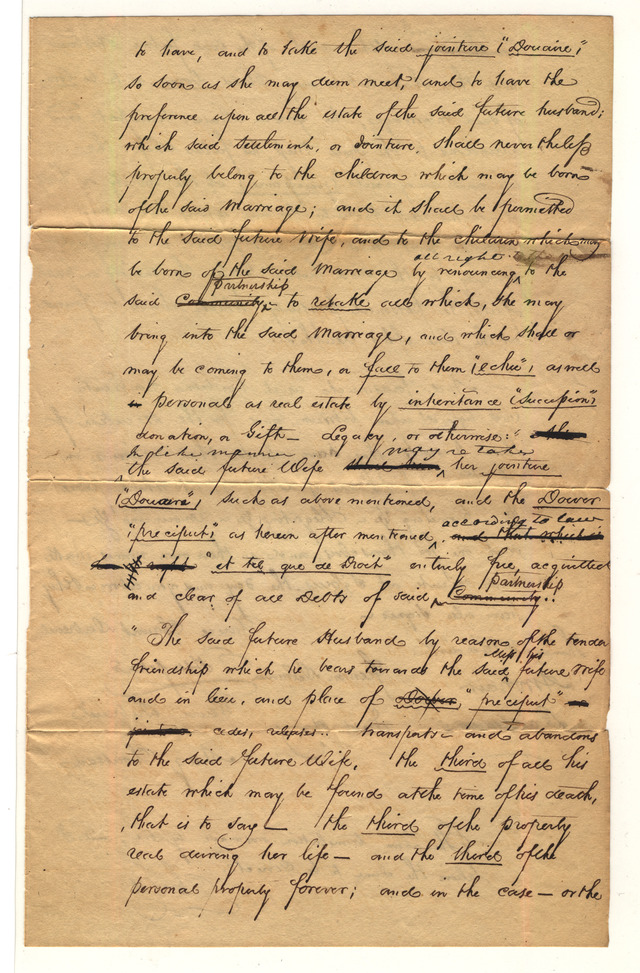 to have, and to take the said jointure "Douaire",
so soon as she may deem meet, and to have the
preference upon all the estate of the said future husband;
which said settlement, or Jointure, shall nevertheless
properly belong to the children which may be born
of the said Marriage; and it shall be permitted
to the said future Wife, and to the children which may
all right
be born of the said Marriage by renouncing to the
Partnership
said Community, to retake all which, she may
bring into the said Marriage, and which shall or
may be coming to them, or fall to them "echu", as well
personal as real estate by inheritance "Succession",
donation, or Gift — Legacy, or otherwise: the
In like manner may retake
the said future Wife her jointure
"Douaire", such as above mentioned, and the Dower
according to law
"preciput" as herein after mentioned, and that which is
right "et tel que de Droit" entirely free, acquitted
Partnership
and clear of all Debts of said Community.
"The said future Husband by reason of the tender
friendship which he bears towards the said future Wife
and in lieu, and place of Dower, "preciput"
cedes, releases, transports and abandons
to the said future Wife, the third of all his
estate which may be found at the time of his death,
that is to say — the third of the property
real during her life — and the third of the
personal property forever; and in the case — or the